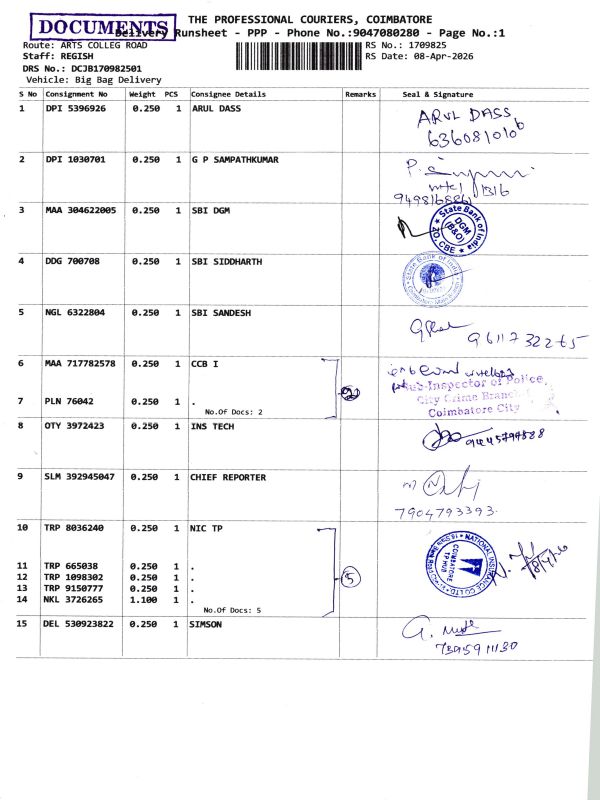 DOCUMENTS
THE PROFESSIONAL COURIERS, COIMBATORE
Delivery Runsheet - PPP - Phone No.:9047080280 - Page No.:1
Route: ARTS COLLEG ROAD
RS No.: 1709825
Staff: REGISH
RS Date: 08-Apr-2026
DRS No.: DCJB170982501
Vehicle: Big Bag Delivery
S No Consignment No Weight PCS Consignee Details Remarks Seal & Signature
1 DPI 5396926 0.250 1 ARUL DASS
ARUL DASS
2 DPI 1030701 0.250 1 G P SAMPATHKUMAR
3 MAA 304622005 0.250 1 SBI DGM
State Bank of India
DGM
(B&O)
ZO, CBE
4 DDG 700708 0.250 1 SBI SIDDHARTH
State Bank of India
5 NGL 6322804 0.250 1 SBI SANDESH
6 MAA 717782578 0.250 1 CCB I
Sub-Inspector of Police,
7 PLN 76042 0.250 1 .
City Crime Branch
No.Of Docs: 2
Coimbatore City
8 OTY 3972423 0.250 1 INS TECH
9 SLM 392945047 0.250 1 CHIEF REPORTER
7904793393
10 TRP 8036240 0.250 1 NIC TP
NATIONAL INSURANCE CO LTD
COIMBATORE
TP HUB
11 TRP 665038 0.250 1 .
12 TRP 1098302 0.250 1 .
5
13 TRP 9150777 0.250 1 .
14 NKL 3726265 1.100 1 .
No.Of Docs: 5
15 DEL 530923822 0.250 1 SIMSON